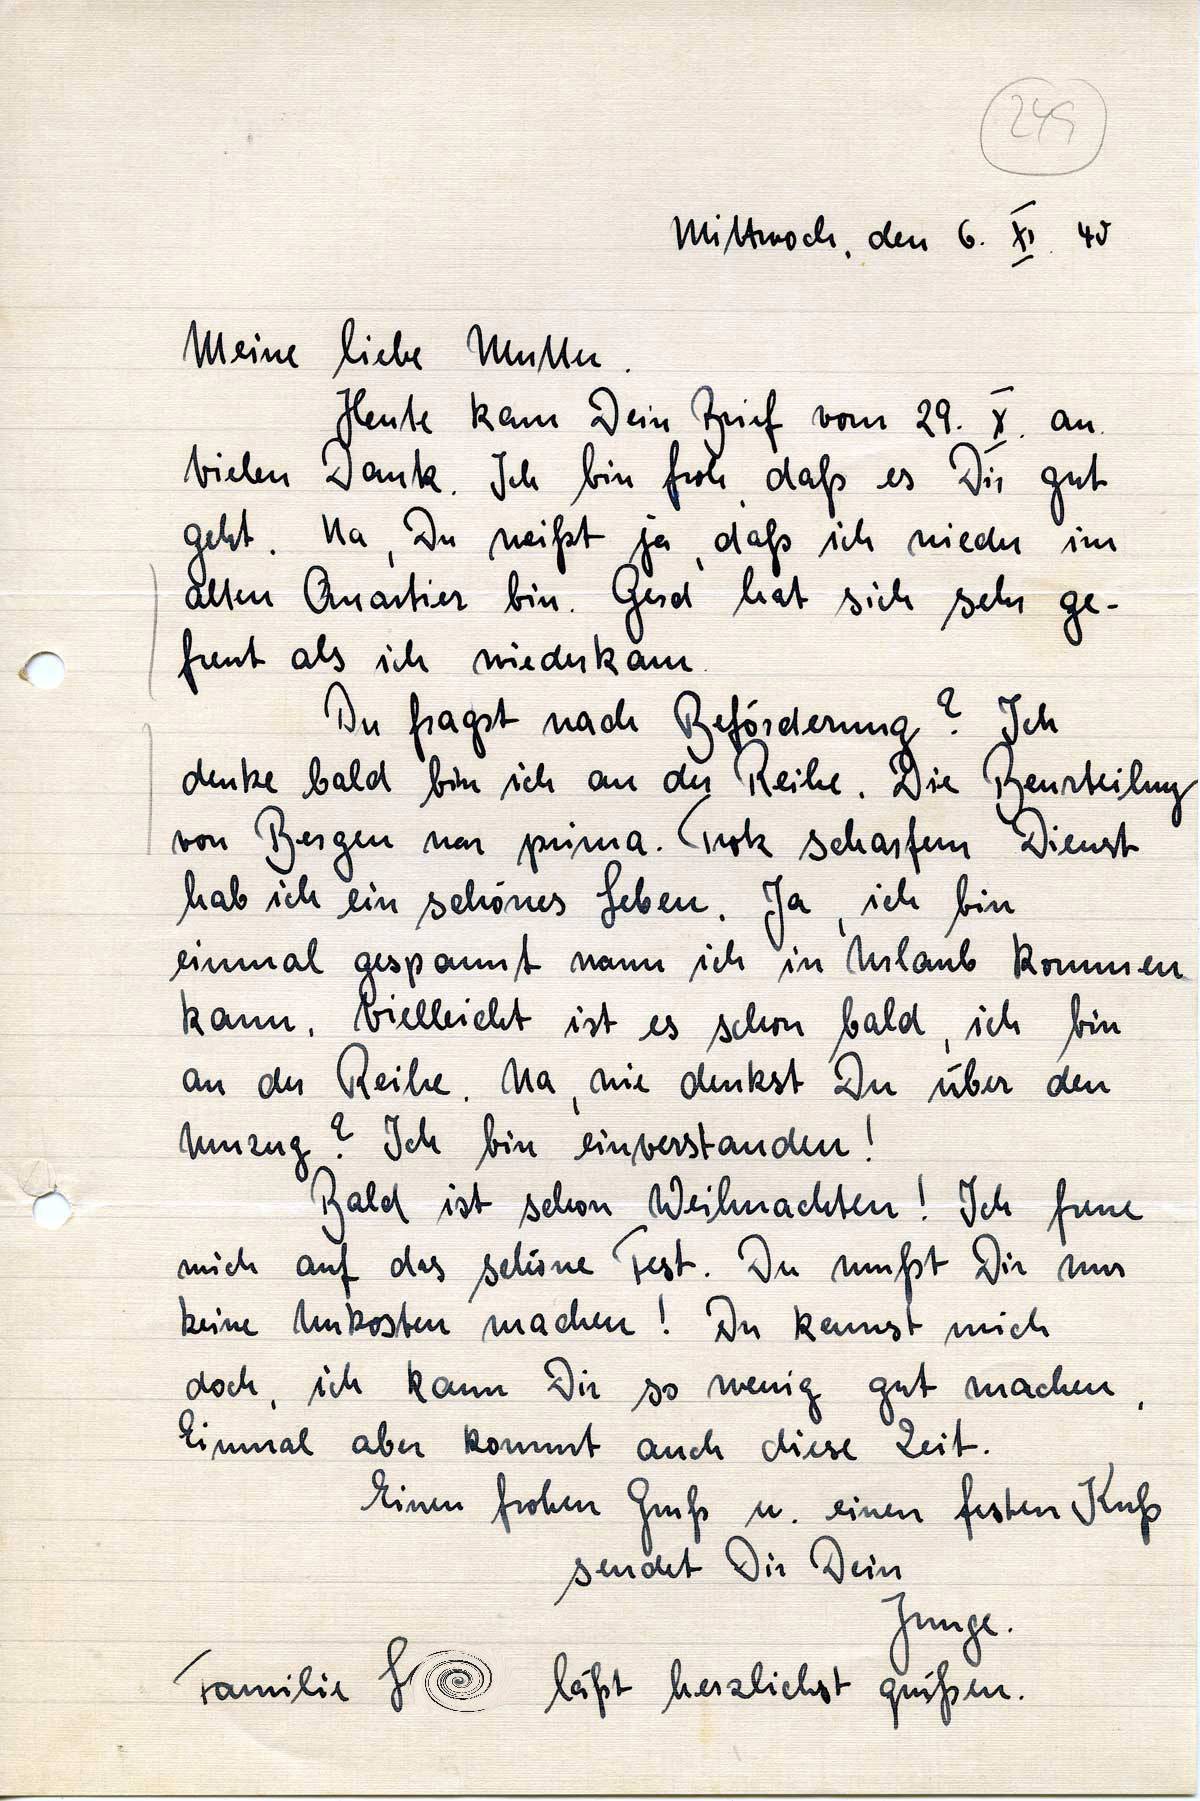 249
Mittwoch, den 6. XI. 40
Meine liebe Mutter.
Heute kam Dein Brief vom 29. X. an.
Vielen Dank. Ich bin froh, daß es Dir gut
geht. Na, Du weißt ja, daß ich wieder im
alten Quartier bin. Gerd hat sich sehr ge-
freut als ich wiederkam.
Du fragst nach Beförderung? Ich
denke bald bin ich an der Reihe. Die Beurteilung
von Bergen war prima. Trotz scharfem Dienst
hab ich ein schönes Leben. Ja, ich bin
einmal gespannt wann ich in Urlaub kommen
kann. Vielleicht ist es schon bald, ich bin
an der Reihe. Na, wie denkst Du über den
Umzug? Ich bin einverstanden!
Bald ist schon Weihnachten! Ich freue
mich auf das schöne Fest. Du mußt Dir nur
keine Unkosten machen! Du kennst mich
doch, ich kann Dir so wenig gut machen,
Einmal aber kommt auch diese Zeit.
Einen frohen Gruß u. einen festen Kuß
sendet Dir Dein
Junge.
Familie L läßt herzlichst grüßen.